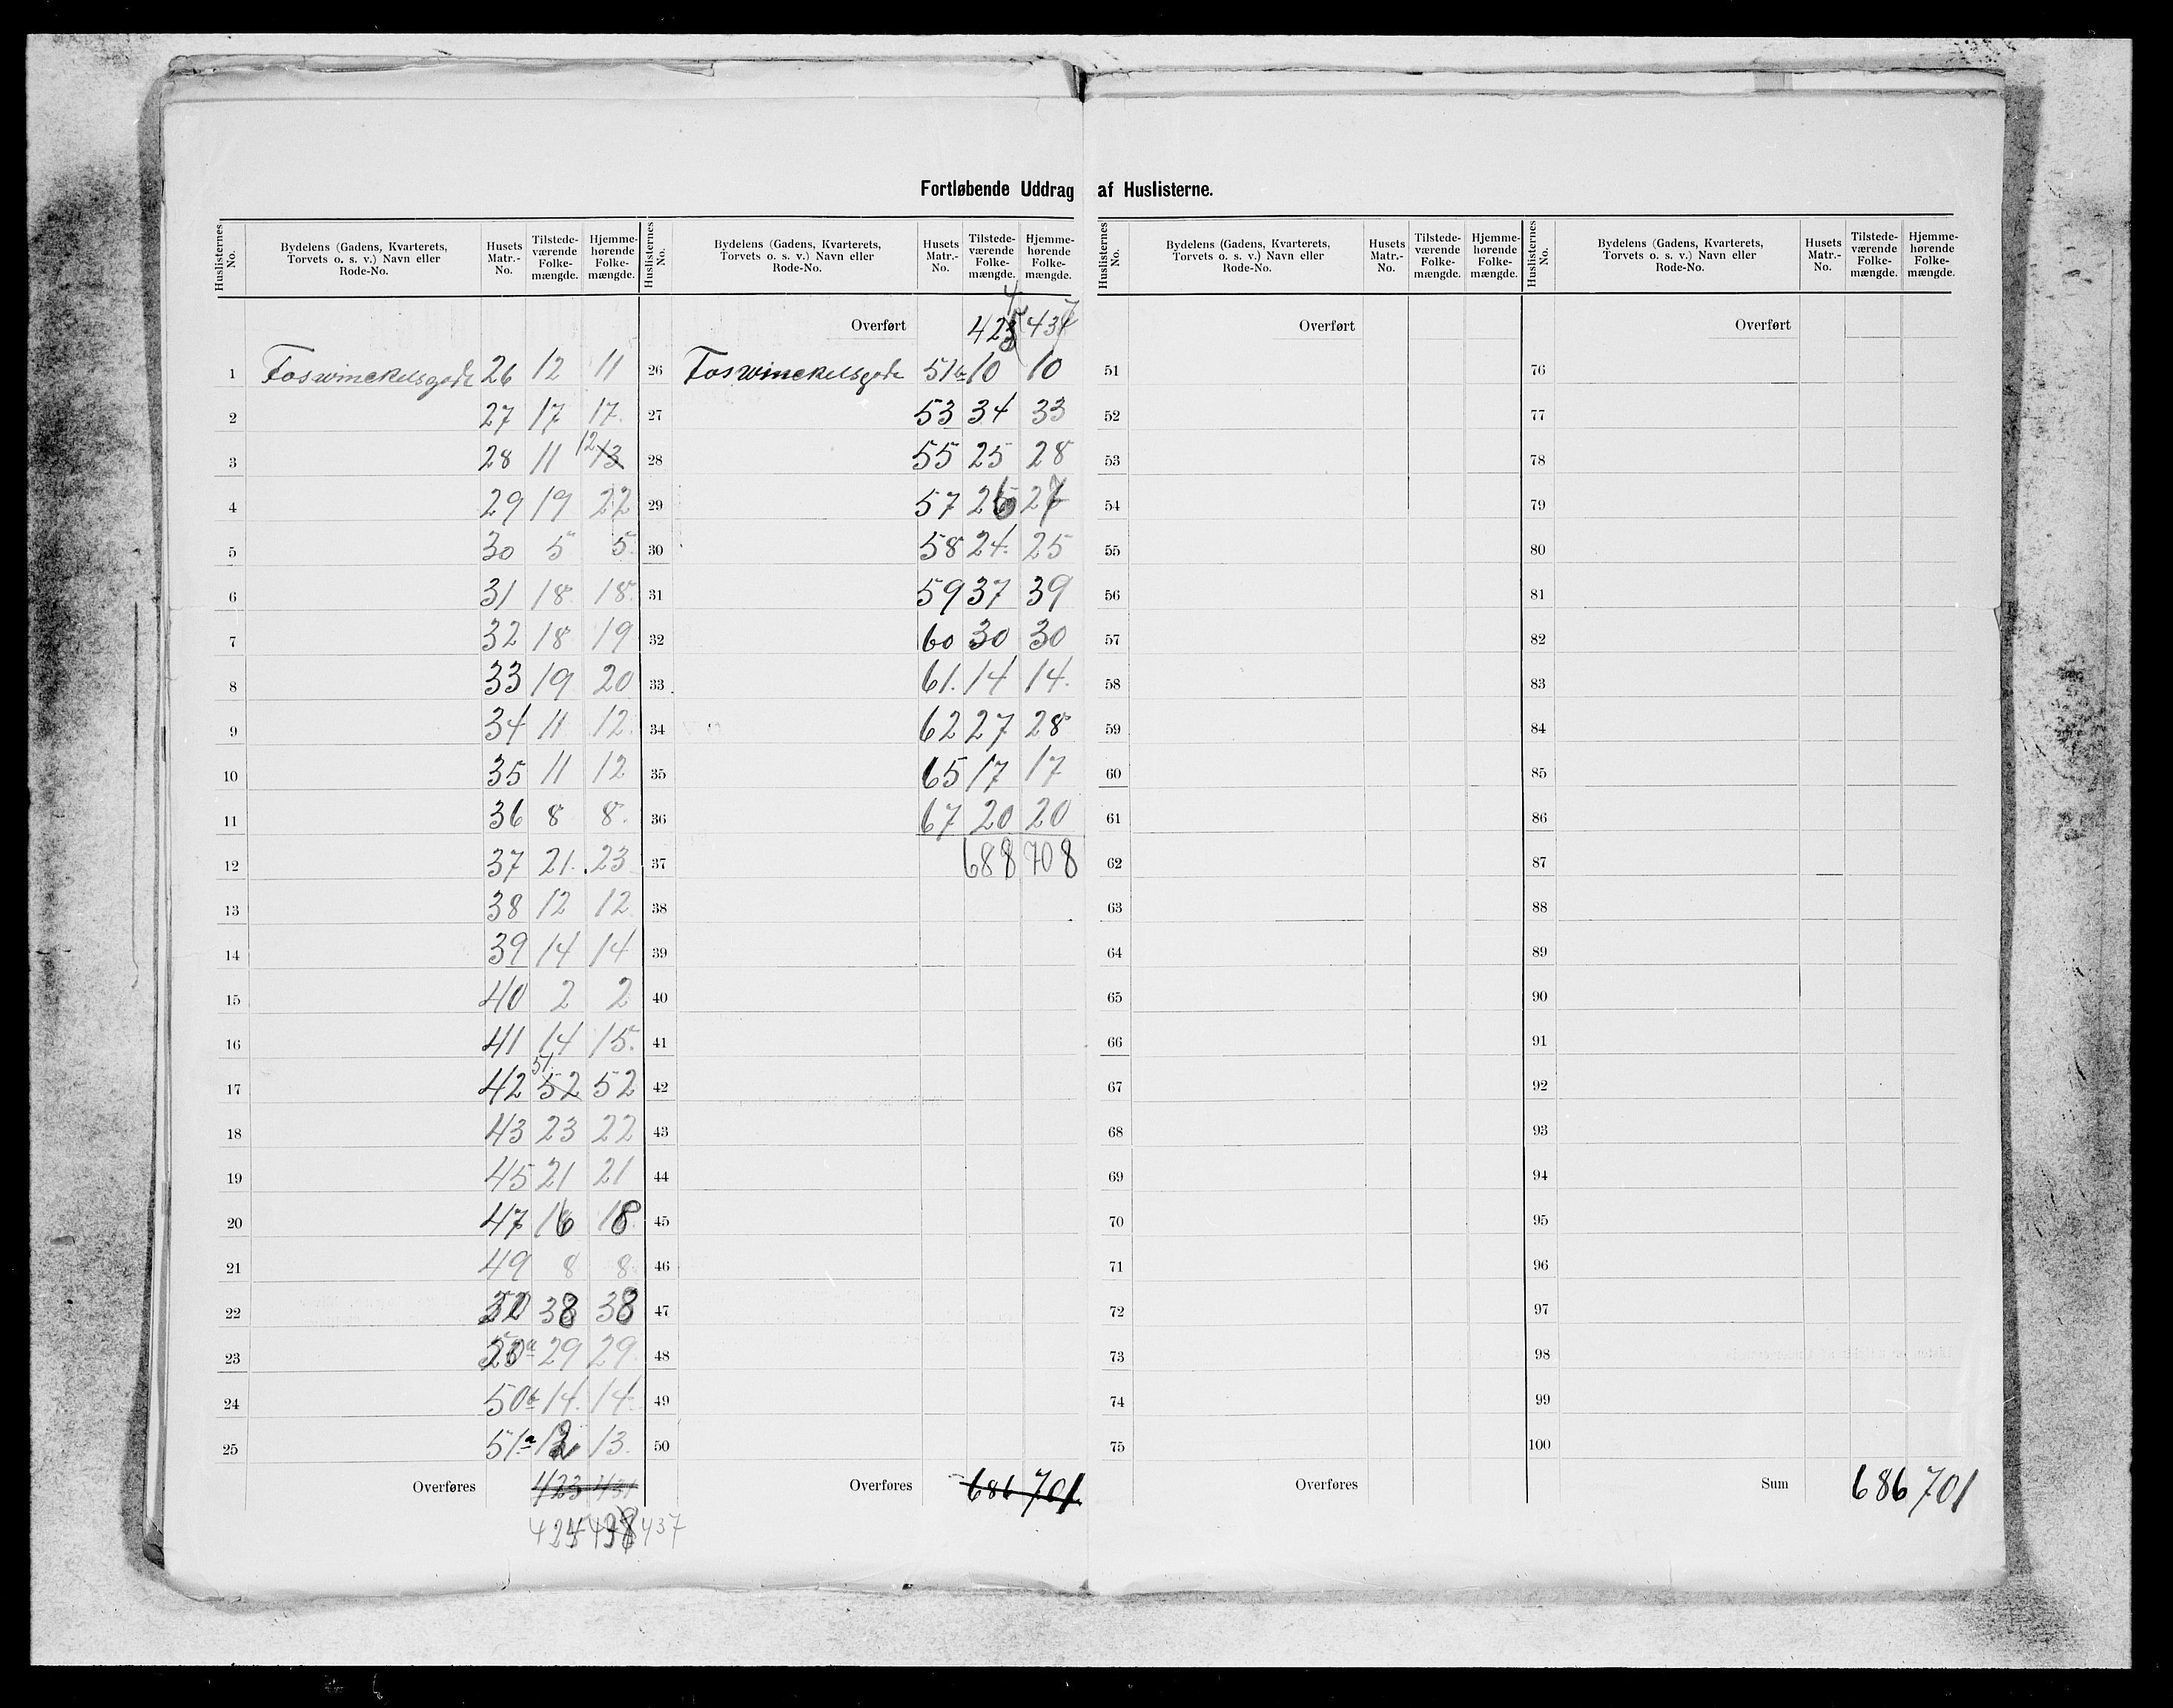 Fortløbende Uddrag af Huslisterne.
Huslisternes No. Bydelens (Gadens, Kvarterets, Torvets o. s. v.) Navn eller Rode-No. Husets Matr.-No. Tilstede-værende Folke-mængde. Hjemme-hørende Folke-mængde. Huslisternes No. Bydelens (Gadens, Kvarterets, Torvets o. s. v.) Navn eller Rode-No. Husets Matr.-No. Tilstede-værende Folke-mængde. Hjemme-hørende Folke-mængde. Huslisternes No. Bydelens (Gadens, Kvarterets, Torvets o. s. v.) Navn eller Rode-No. Husets Matr.-No. Tilstede-værende Folke-mængde. Hjemme-hørende Folke-mængde. Huslisternes No. Bydelens (Gadens, Kvarterets, Torvets o. s. v.) Navn eller Rode-No. Husets Matr.-No. Tilstede-værende Folke-mængde. Hjemme-hørende Folke-mængde.
Overført Overført Overført
1 Toswinckelsgade 26 12 11 26 Toswinckelsgade 51b 10 10 51 76
2 27 17 17. 27 53 34 33 52 77
3 28 11 12 13 28 55 25 28 53 78
4 29 19 22 29 57 26 27 54 79
5 30 5 5. 30 58 24. 25 55 80
6 31 18 18. 31 59 37 39 56 81
7 32 18 19 32 60 30 30 57 82
8 33 19 20 33 61. 14 14. 58 83
9 34 11 12. 34 62 27 28 59 84
10 35 11 12 35 65 17 17 60 85
11 36 8 8. 36 67 20 20 61 86
12 37 21. 23 37 688 708 62 87
13 38 12 12 38 63 88
14 39 14 14 39 64 89
15 40 2 2 40 65 90
16 41 14 15. 41 66 91
17 42 51. 52 52 42 67 92
18 43 23 22 43 68 93
19 45 21 21 44 69 94
20 47 16 18 45 70 95
21 49 8 8 46 71 96
22 38 38 47 72 97
23 50a 29 29. 48 73 98
24 50b 14. 14. 49 74 99
25 51.a 12 13. 50 75 100
Overføres 423 431 Overføres 686 701 Overføres Sum 686 701
437